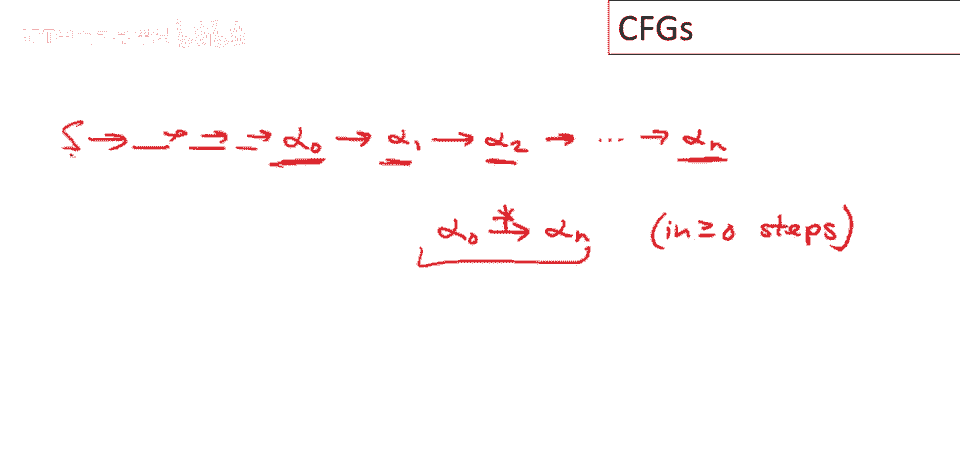 CFGs
S → _ → _ → _ → α₀ → α₁ → α₂ → ... → αₙ
α₀ →* αₙ (in ≥ 0 steps)